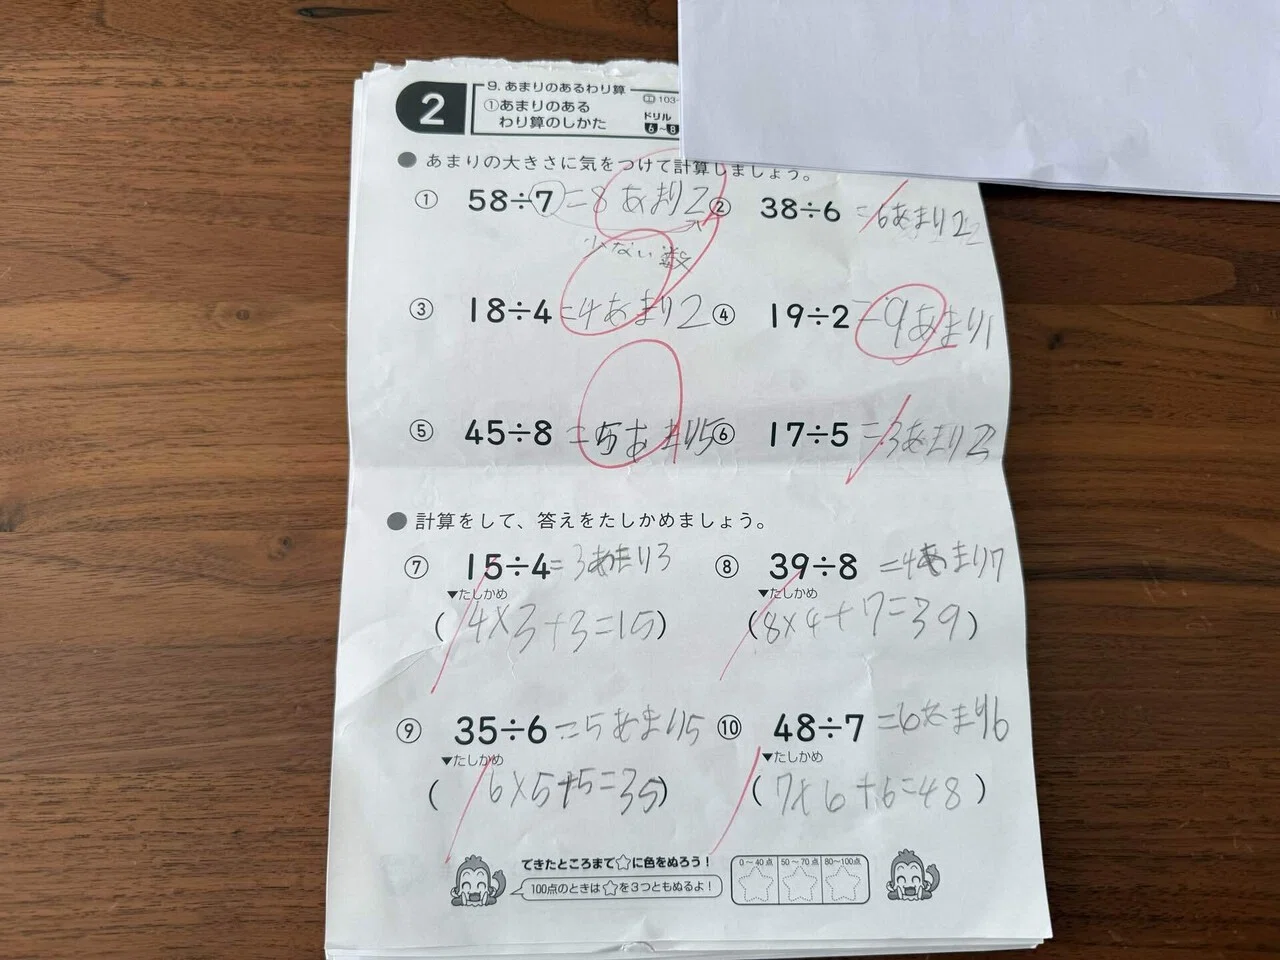 2
9. あまりのあるわり算
①あまりのある
わり算のしかた
103-
ドリル
6~8
● あまりの大きさに気をつけて計算しましょう。
① 58÷7=8あまり2
少ない数
② 38÷6=6あまり2
③ 18÷4=4あまり2
④ 19÷2=9あまり1
⑤ 45÷8=5あまり5
⑥ 17÷5=3あまり2
● 計算をして、答えをたしかめましょう。
⑦ 15÷4=3あまり3
▼たしかめ
(4×3+3=15)
⑧ 39÷8=4あまり7
▼たしかめ
(8×4+7=39)
⑨ 35÷6=5あまり5
▼たしかめ
(6×5+5=35)
⑩ 48÷7=6あまり6
▼たしかめ
(7×6+6=48)
できたところまで☆に色をぬろう!
100点のときは☆を3つともぬるよ!
0~40点 50~70点 80~100点